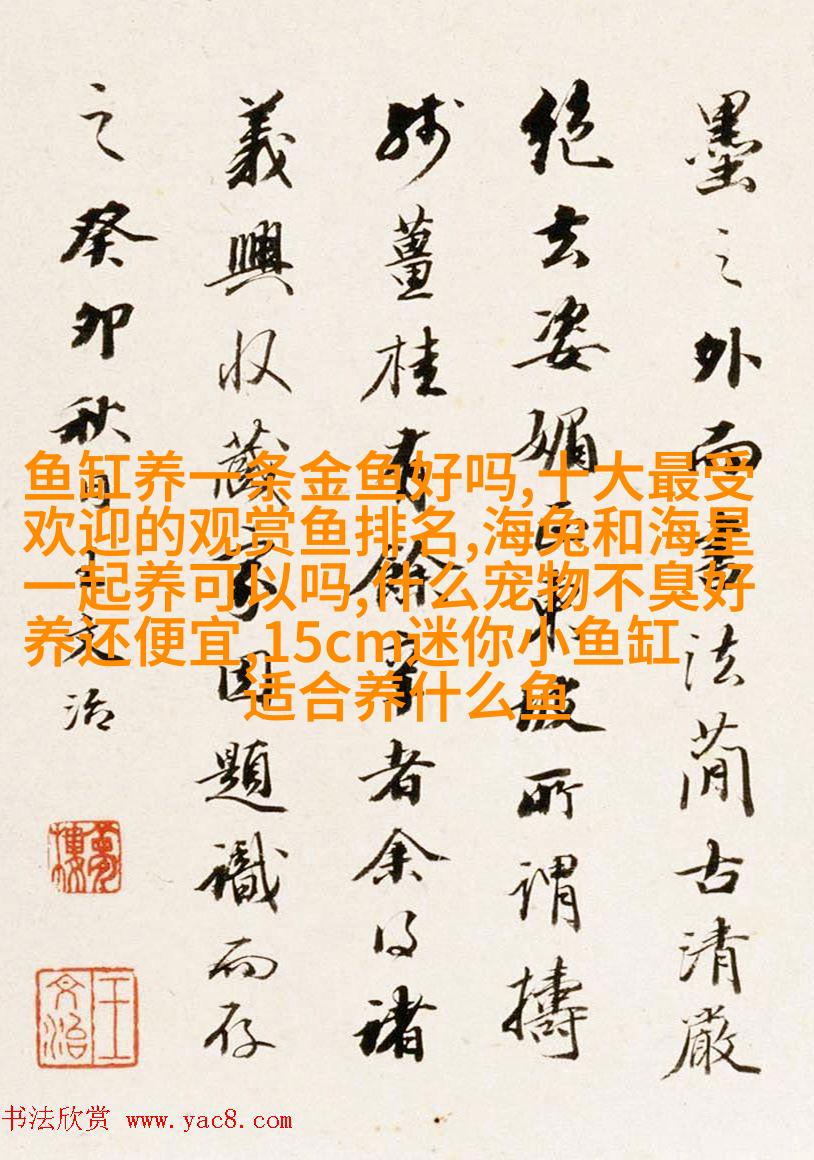 墨之外而書法蕑古清嚴
絕去姿媚束縛所謂擣
殘薑桂有餘辛者余得諸
義興收藏家因題識而存
之癸卯秋月王文治
夢樓
王文治
鱼缸养一条金鱼好吗,十大最受
欢迎的观赏鱼排名,海兔和海星
一起养可以吗,什么宠物不臭好
养还便宜,15cm迷你小鱼缸
适合养什么鱼
书法欣赏 www.yac8.com